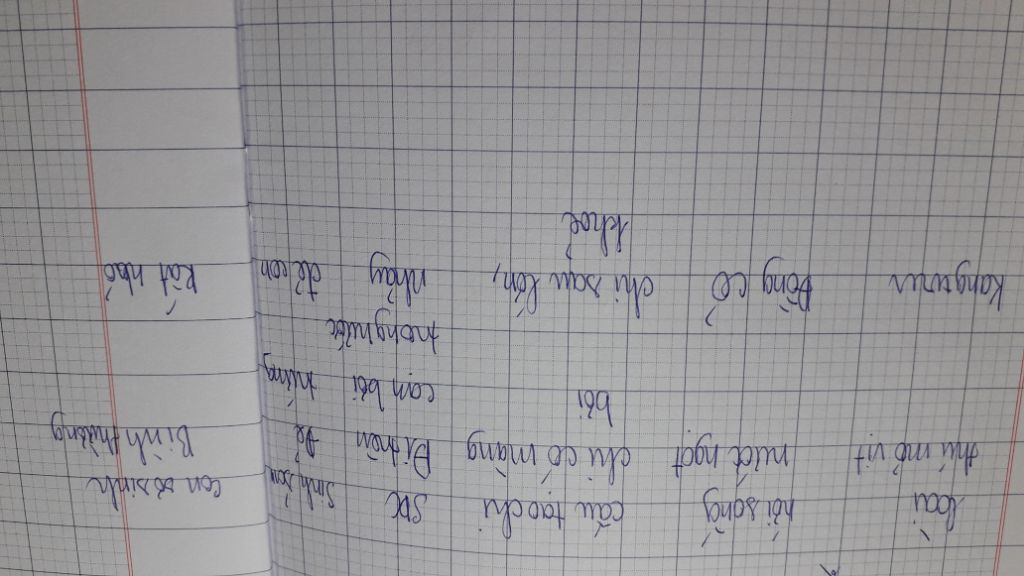 loài nơi sống cấu tạo chi SDC Sinh sản con sơ sinh
thú mỏ vịt nước ngọt chi có màng Đi trên Đẻ Bình thường
bơi cạn bơi trứng
trong nước
Kanguru Đồng cỏ chi sau lớn, nhảy đẻ con Rất nhỏ
khoẻ